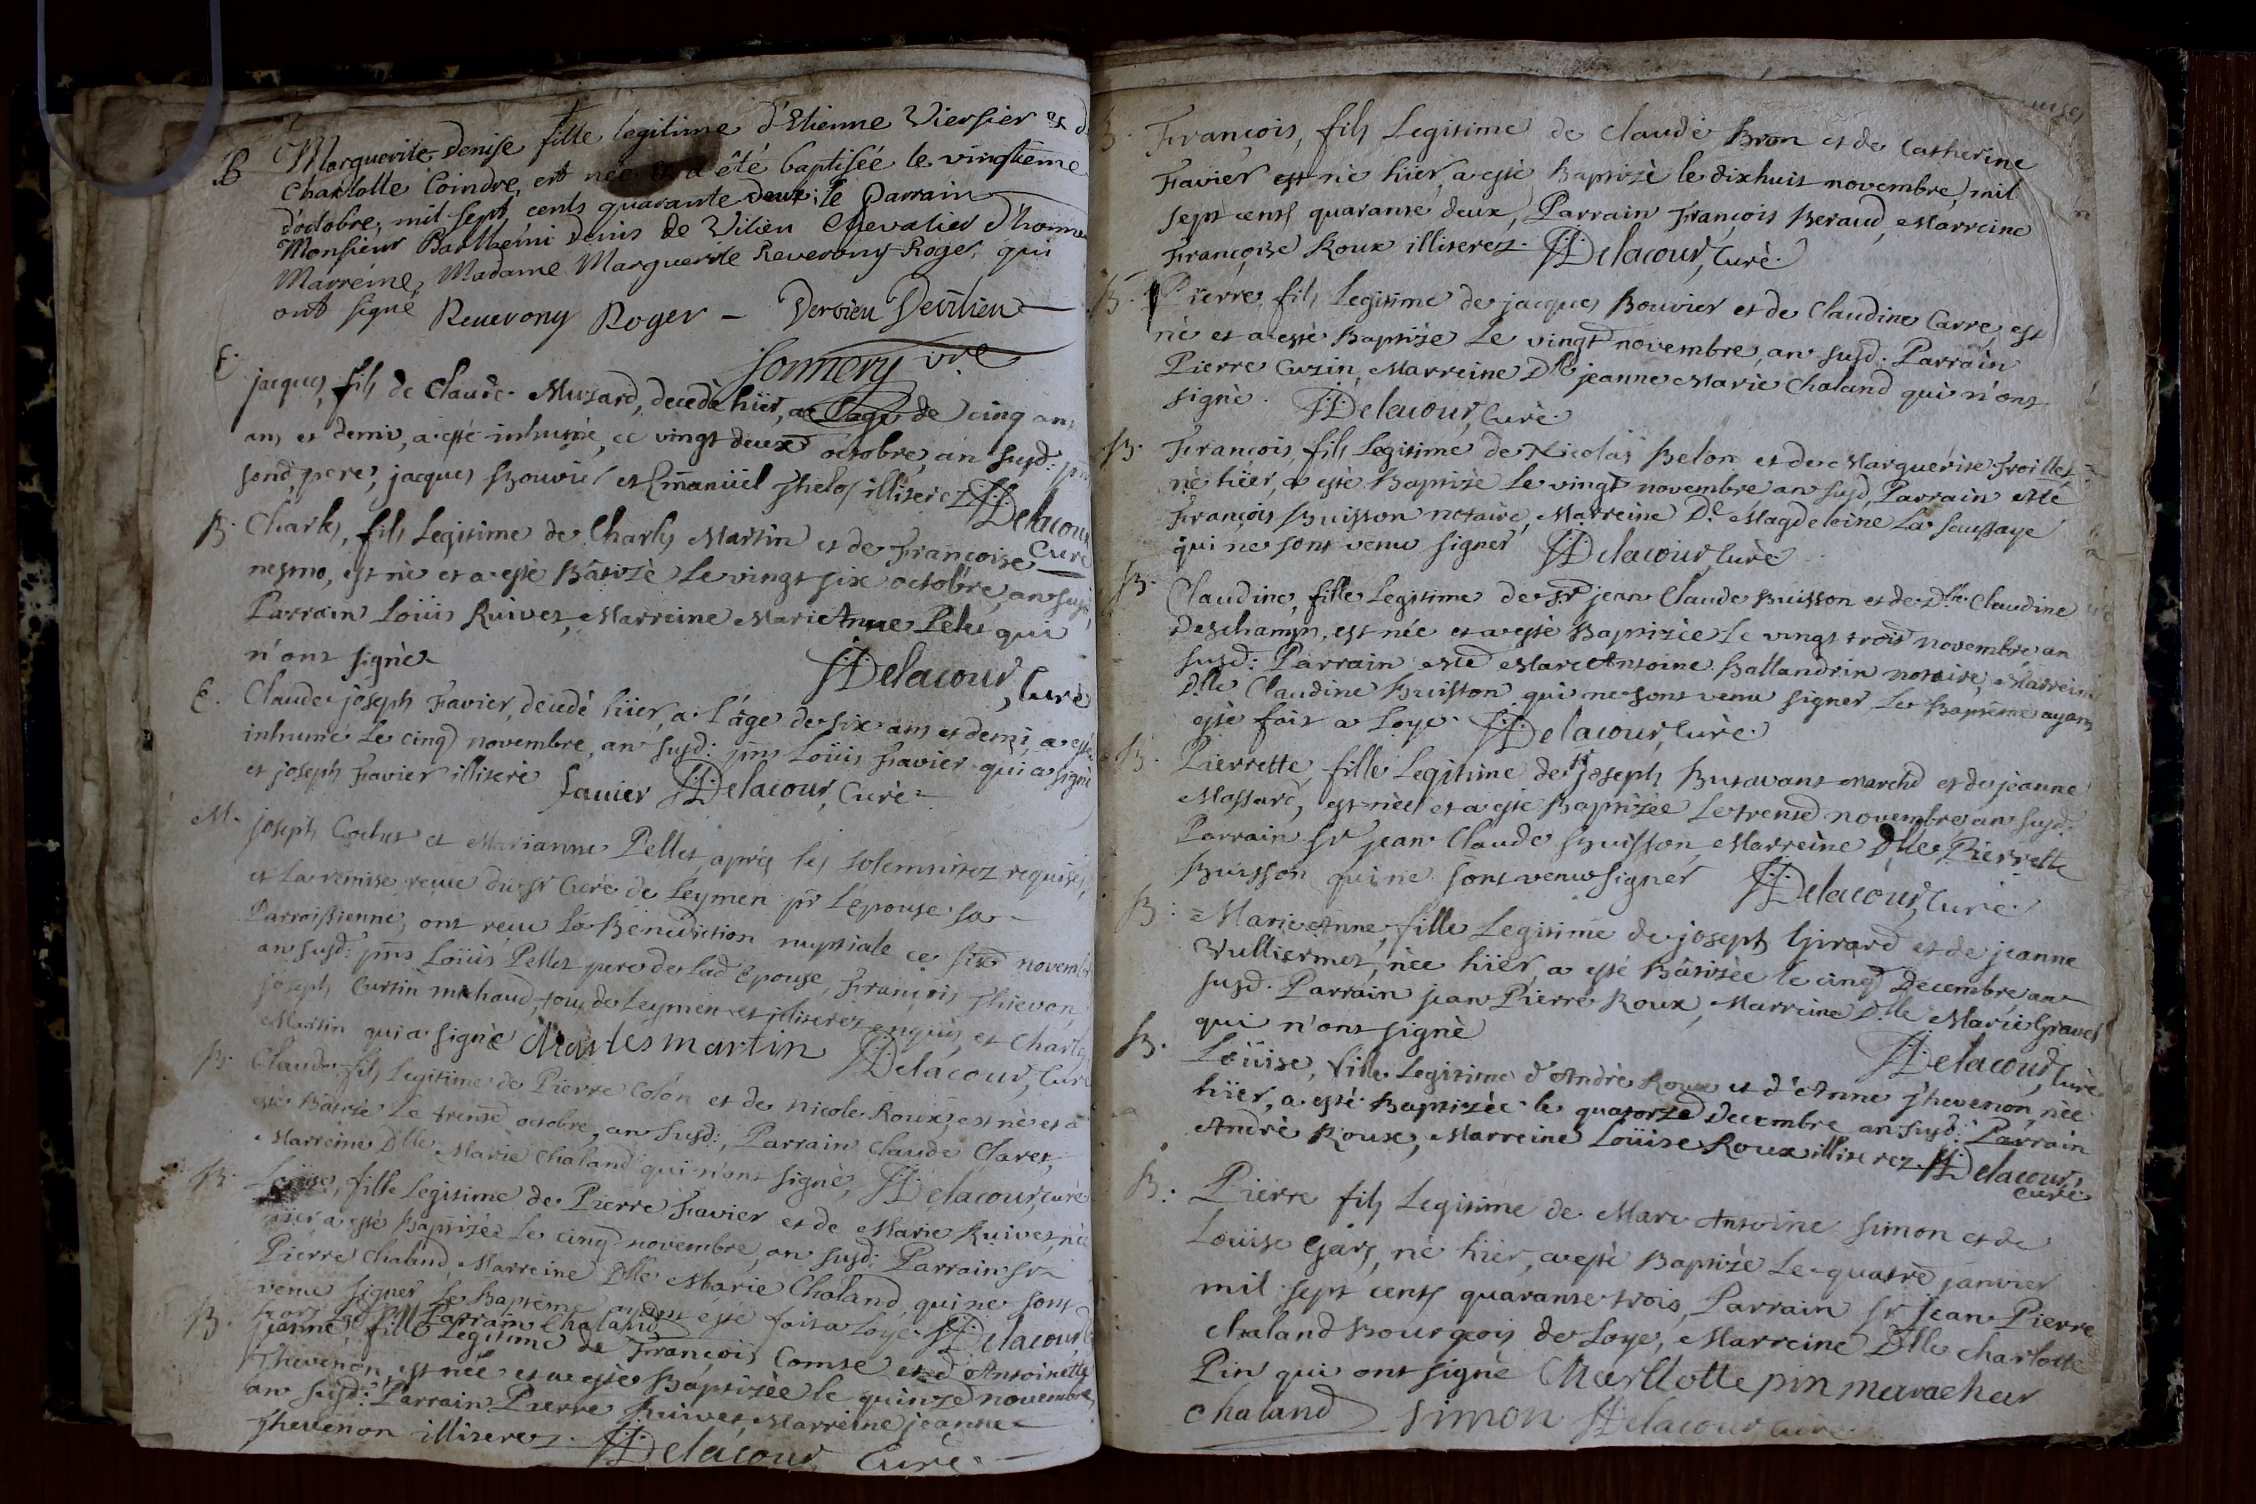 B Marguerite Denise fille legitime d'Etienne Viersier et d
Charlotte Coindre, est née et a été baptisée le vingtième
d'octobre, mil sept cents quarante deux; le Parrain
Monsieur Barthelmi Denis de Vilieu Chevalier d'honne
Marréine, Madame Marguerite Reverony Roger, qui
ont signé Reverony Roger – Dervieu Devilieu
Sonnery vre
E. jacques, fils de Claude Muzard, decedè hiïer, a l'age de cinq ans
ans et demi, a esté inhumé, ce vingt deux octobre, an susd:
sond pere, jacques Bouvier et Emanüel Thelos illiterez HDelacour
Curé
B. Charles, fils Legitime de Charles Martin et de Françoise
nesmo, est né et a esté Bâtizè Le vingt six octobre, an susd
Parrain Loüis Ruivet, Marreine Marie Anne Pelu qui
n'ont signèz HDelacour, Curè
E. Claude joseph Favier, decedé hïer, a l'âge de six ans et demi, a esté
inhumé Le cinq novembre, an susd: pns Loüis Favier qui a signé
et joseph Favier illiteré favier HDelacour, Curè
M. joseph Cochet et Marianne Pellet, aprés les solemnitez requises,
et La remise reçue du sr Curè de Leymen pr L'epouse sa
Parroissienne, ont reçu La Benediction nuptiale ce six novembr
an susd: pns Loüis Pellet pere de Lad Epouse, François Thievon,
joseph Curtin michaud, tous de Leymen et illiterez enquis, et Charles
Martin qui a signè Charles martin HDelacour, Curé
B. Claude fils Legitime de Pierre Colon et de Nicole Roux, est né et a
esté Bâtizè Le trente octobre, an susd:, Parrain Claude Claret,
Marreine Dlle Marie Chaland qui n'ont signè, HDelacour, curé
B. Loüise, fille Legitime de Pierre Favier et de Marie Ruivet, nèe
hïer a esté Baptizée Le cinq novembre, an susd: Parrain sr
Pierre Chaland, Marreine Dlle Marie Chaland, qui ne sont
venu signer Le Baptême ayant esté fait a Loye HDelacour
Parrain Chaland
B. jeanne, fille Legitime de François Comte et d'Antoinette
Thevenon, est née et a esté Baptizée le quinze novembre
an susd: Parrain Pierre Ruivet, Marreine jeanne
Thevenon illiterez. HDelacour Curè.
B. François, fils Legitime de Claude Bron et de Catherine
Favier est né hïer, a esté Baptizè le dixhuit novembre, mil
sept cents quarante deux, Parrain François Beraud, Marreine
Françoise Roux illiterez. HDelacour, Curè.
B. Pierre, fils Legitime de jacques Bouvier et de Claudine Carre, est
né et a esté Baptizé Le vingt novembre, an susd. Parrain
Pierre Cuzin, Marreine Dlle jeanne Marie Chaland qui n'ont
signè. HDelacour, Curè.
B. François, fils Legitime de Nicolas Belon et de Marguerite Troillet
né hïer, a esté Baptizè Le vingt novembre an susd, Parrain Me
François Buisson notaire, Marreine De Magdeleine La Saussaye
qui ne sont venu signer HDelacour, Curè
B. Claudine, fille Legitime de sr jean Claude Buisson et de Dlle Claudine
Deschamps, est née et a esté Baptizée Le vingt trois novembre, an
susd: Parrain Me Marc Antoine Ballandrin notaire, Marreine
Dlle Claudine Buisson qui ne sont venu signer Le Baptême ayant
esté fait a Loye. HDelacour, Curè.
B. Pierrette, fille Legitime de sr joseph Butavant marchd et de jeanne
Massard, est née et a esté Baptizée Le trente novembre an susd:
Parrain sr jean Claude Buisson, Marreine Dlle Pierrette
Buisson qui ne sont venu signer HDelacour, Curé.
B: Marie Anne, fille Legitime de joseph Girard et de jeanne
Vulliermet, née hïer, a esté Bâtizée le cinq Decembre an
susd. Parrain jean Pierre Roux, Marreine Dlle Marie Gravet
qui n'ont signè HDelacour, Curè
B. Loüise, fille Legitime d'Andrè Roux et d'Anne Thevenon, nèe
hïer, a esté Baptizée le quatorze Decembre an susd: Parrain
Andrè Roux, Marreine Loüise Roux illiterez. HDelacour,
curè
B. Pierre fils Legitime de Marc Antoine Simon et de
Loüise Gars, né hïer, a esté Baptizè Le quatre janvier
mil sept cents quarante trois, Parrain sr jean Pierre
chaland Bourgeois de Loye, Marreine Dlle charlotte
Pin qui ont signè Charllotte pin
chaland Simon HDelacour curè